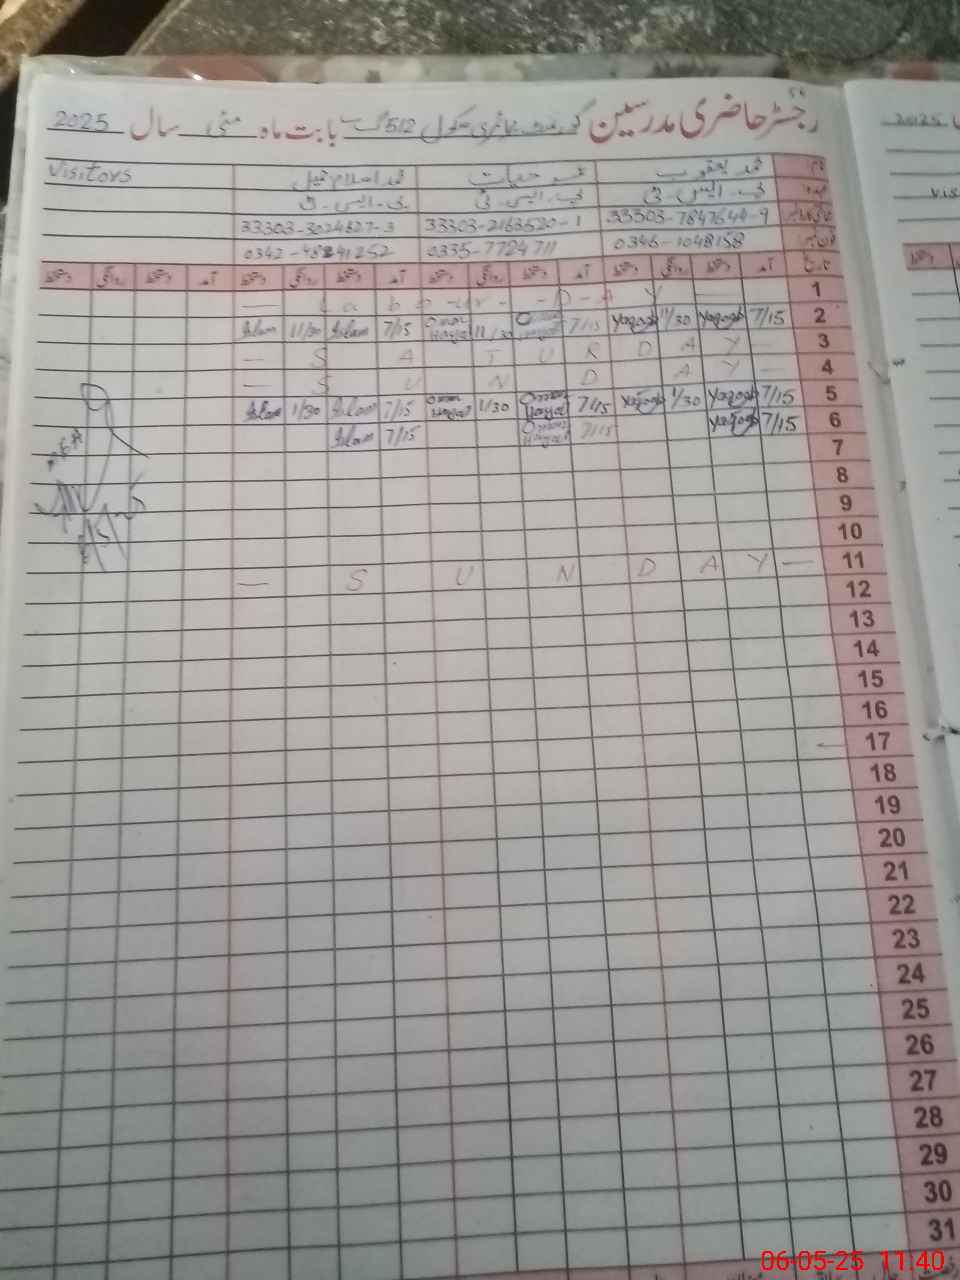 رجسٹر حاضری مدرسین گورنمنٹ پرائمری سکول 512 گ ب بابت ماہ مئی سال 2025
نام محمد یعقوب عمر حیات محمد اسلام Visitors
عہدہ پی۔ایس۔ٹی پی۔ایس۔ٹی پی۔ایس۔ٹی
33303-7847644-9 33303-2163520-1 33303-3024827-3
فون نمبر 0346-1048158 0335-7724711
تاریخ آمد دستخط روانگی دستخط آمد دستخط روانگی دستخط آمد دستخط روانگی دستخط آمد دستخط روانگی دستخط
1 — L a b o u r - D - A Y —
2 7/15 Yaqoob 11/30 Yaqoob 7/15 Omar Hayat 11/30 Omar Hayat 7/15 Islam 11/30 Islam
3 — S A T U R D A Y —
4 — S U N D A Y —
5 7/15 Yaqoob 1/30 Yaqoob 7/15 Omar Hayat 1/30 Omar Hayat 7/15 Islam 1/30 Islam
6 7/15 Yaqoob 7/15 Omar Hayat 7/15 Islam
7
8
9
10
11 — S U N D A Y —
12
13
14
15
16
17
18
19
20
21
22
23
24
25
26
27
28
29
30
31
2025
06-05-25 11:40